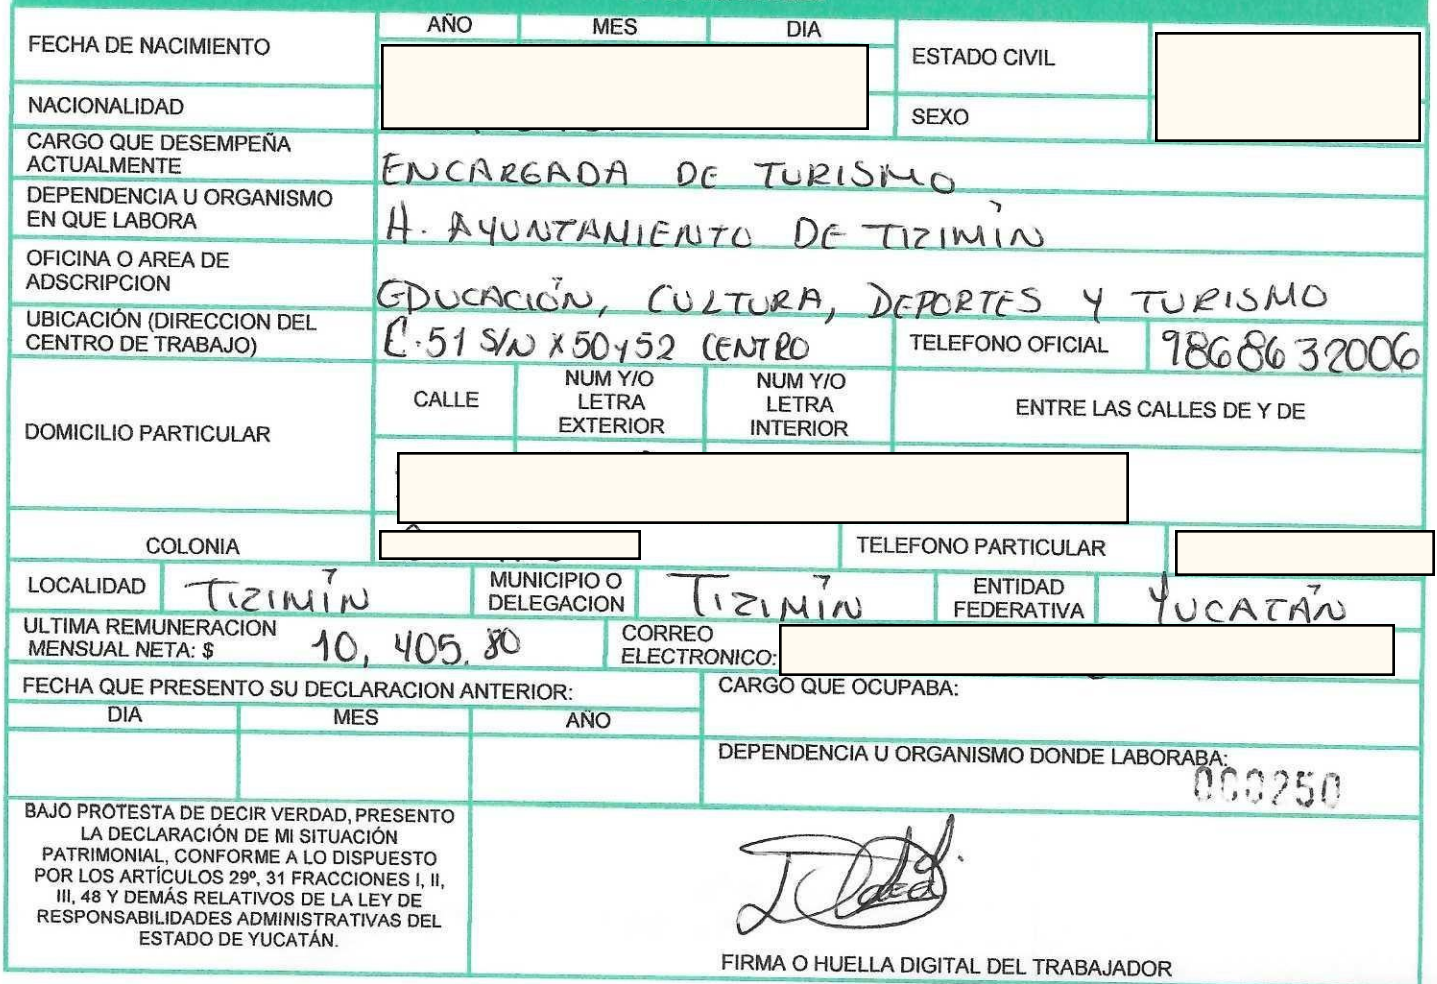 AÑO MES DIA
FECHA DE NACIMIENTO
ESTADO CIVIL
NACIONALIDAD
SEXO
CARGO QUE DESEMPEÑA
ACTUALMENTE
ENCARGADA DE TURISMO
DEPENDENCIA U ORGANISMO
EN QUE LABORA
H. AYUNTAMIENTO DE TIZIMÍN
OFICINA O AREA DE
ADSCRIPCION
EDUCACIÓN, CULTURA, DEPORTES Y TURISMO
UBICACIÓN (DIRECCION DEL
CENTRO DE TRABAJO)
C.51 S/N X50y52 CENTRO
TELEFONO OFICIAL
9868632006
DOMICILIO PARTICULAR
CALLE
NUM Y/O
LETRA
EXTERIOR
NUM Y/O
LETRA
INTERIOR
ENTRE LAS CALLES DE Y DE
COLONIA
TELEFONO PARTICULAR
LOCALIDAD
TIZIMÍN
MUNICIPIO O
DELEGACION
TIZIMÍN
ENTIDAD
FEDERATIVA
YUCATÁN
ULTIMA REMUNERACION
MENSUAL NETA: $
10, 405.80
CORREO
ELECTRONICO:
FECHA QUE PRESENTO SU DECLARACION ANTERIOR:
CARGO QUE OCUPABA:
DIA MES AÑO
DEPENDENCIA U ORGANISMO DONDE LABORABA:
000250
BAJO PROTESTA DE DECIR VERDAD, PRESENTO
LA DECLARACIÓN DE MI SITUACIÓN
PATRIMONIAL, CONFORME A LO DISPUESTO
POR LOS ARTÍCULOS 29º, 31 FRACCIONES I, II,
III, 48 Y DEMÁS RELATIVOS DE LA LEY DE
RESPONSABILIDADES ADMINISTRATIVAS DEL
ESTADO DE YUCATÁN.
FIRMA O HUELLA DIGITAL DEL TRABAJADOR